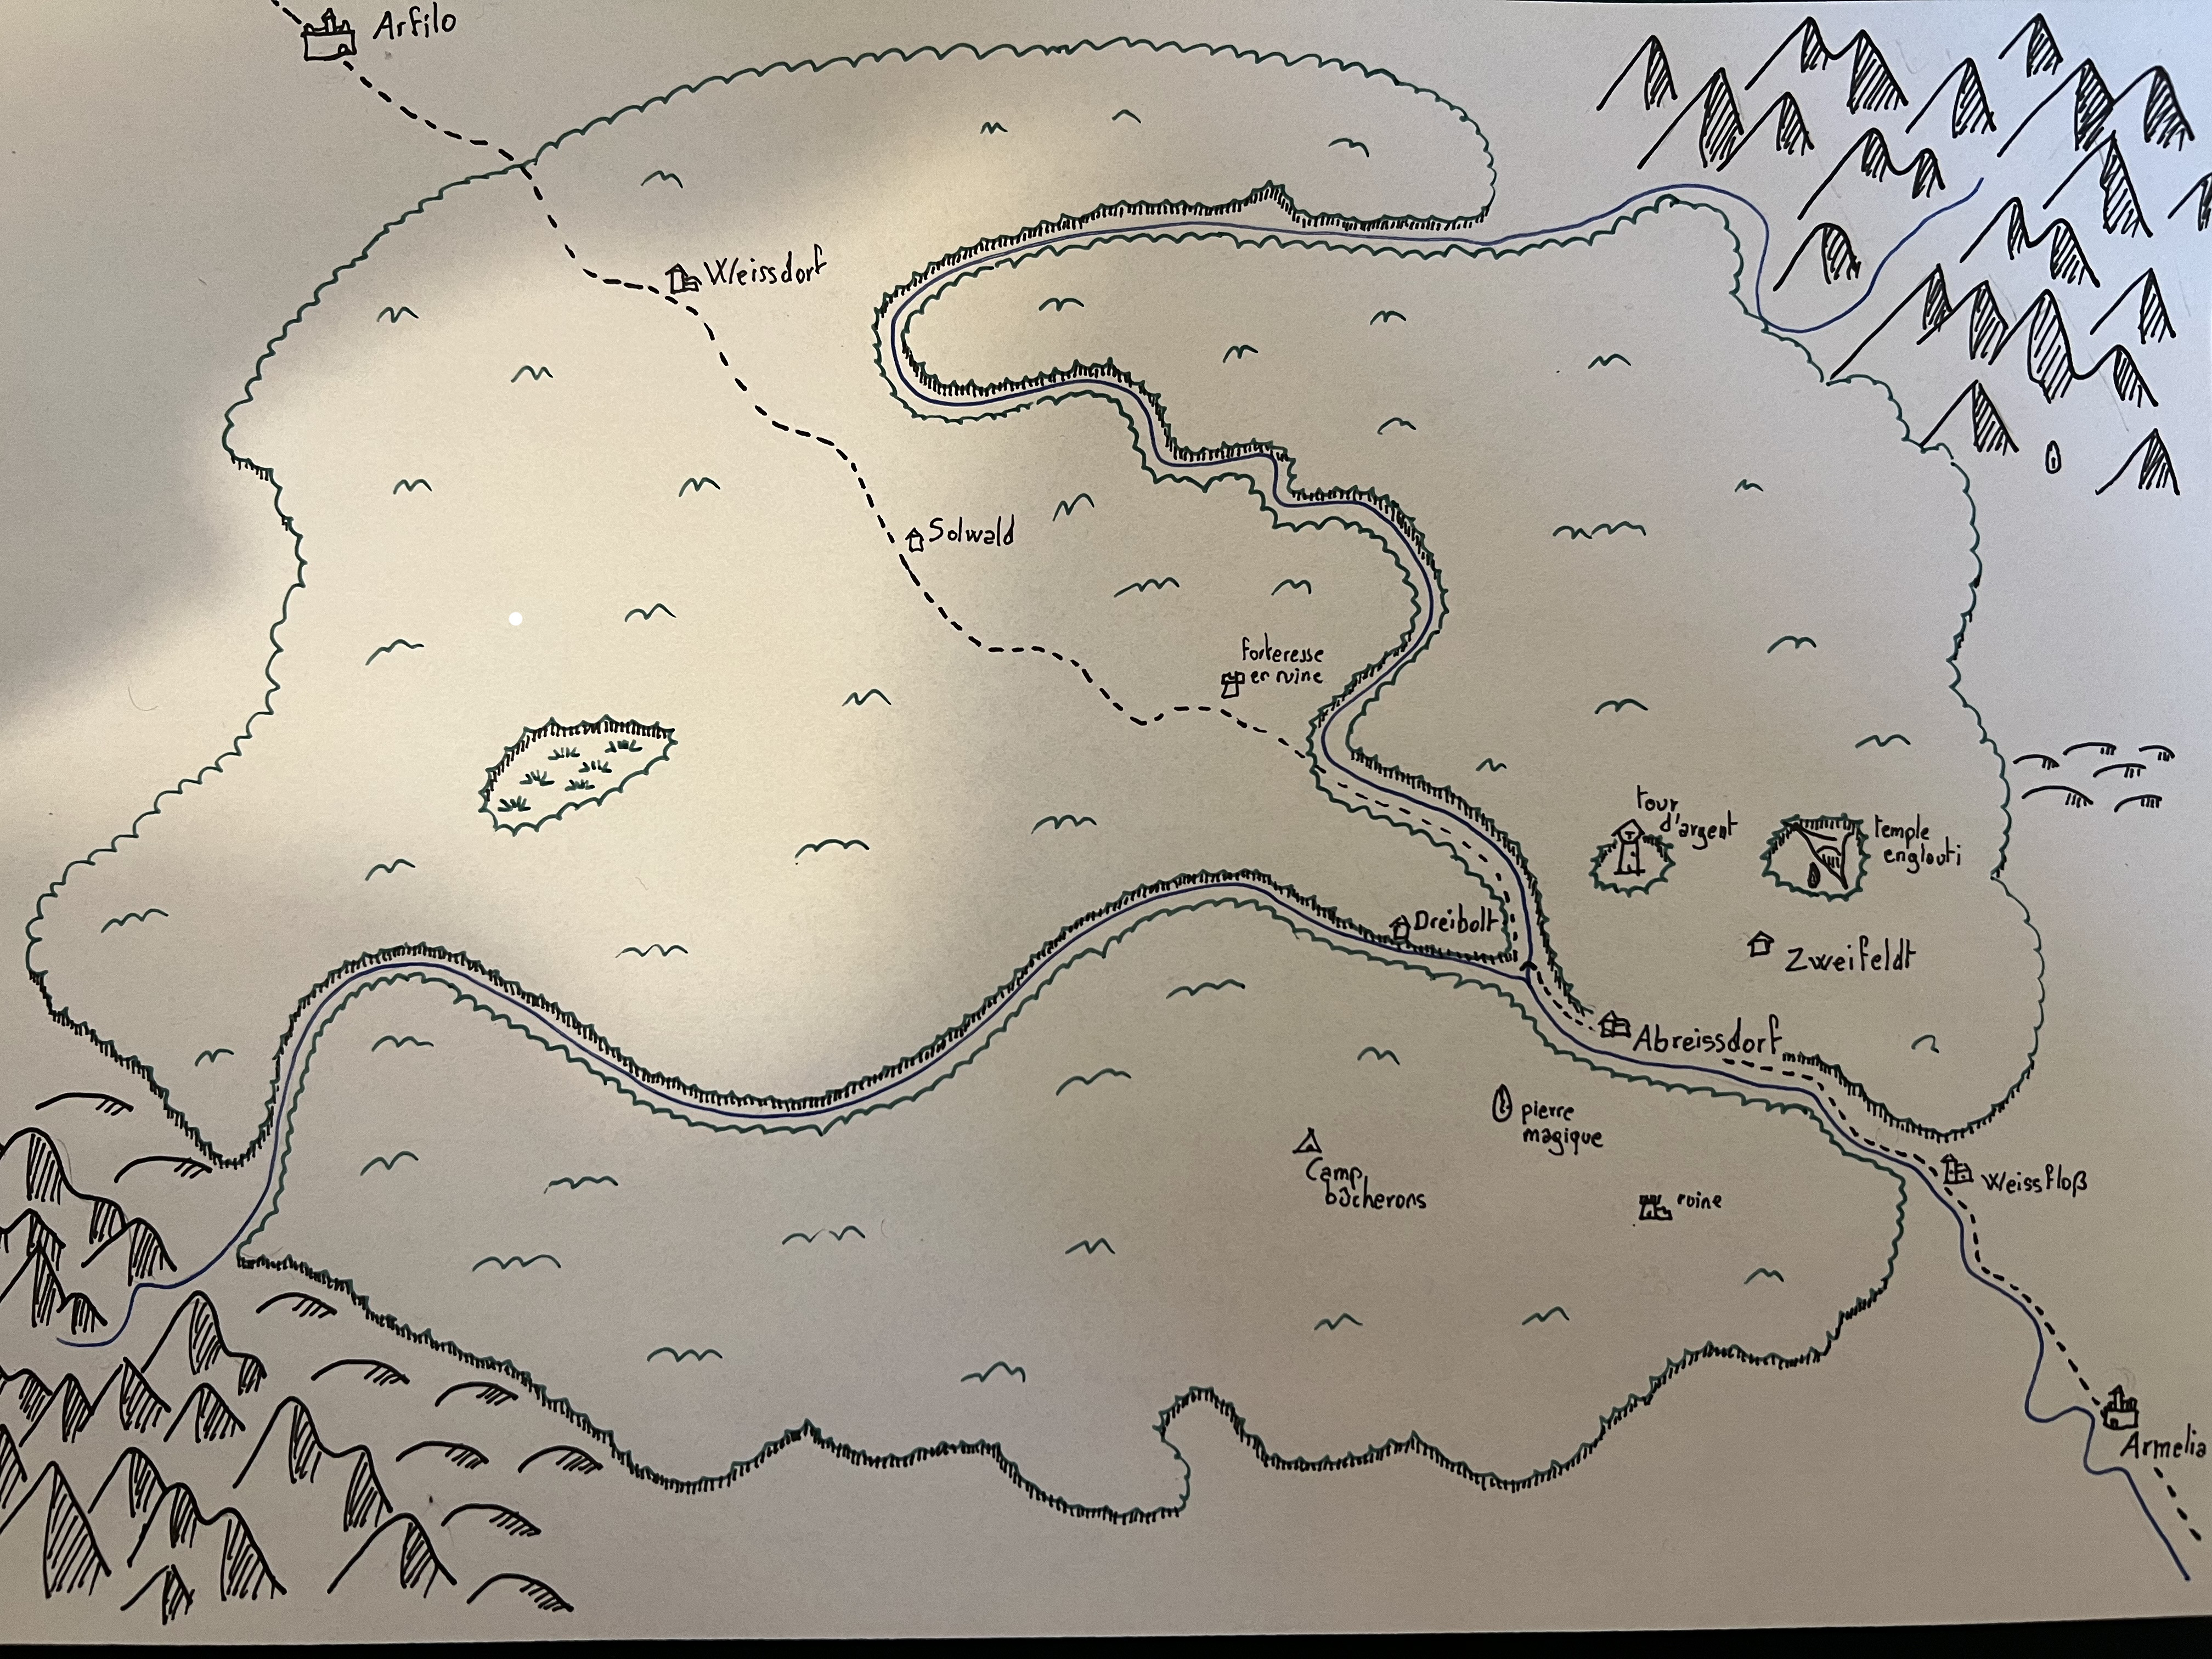 Arfilo
Weissdorf
Solwald
forteresse
en ruine
tour
d'argent
temple
englouti
Dreibolt
Zweifeldt
Abreissdorf
pierre
magique
Camp
bûcherons
ruine
Weissfloß
Armelia